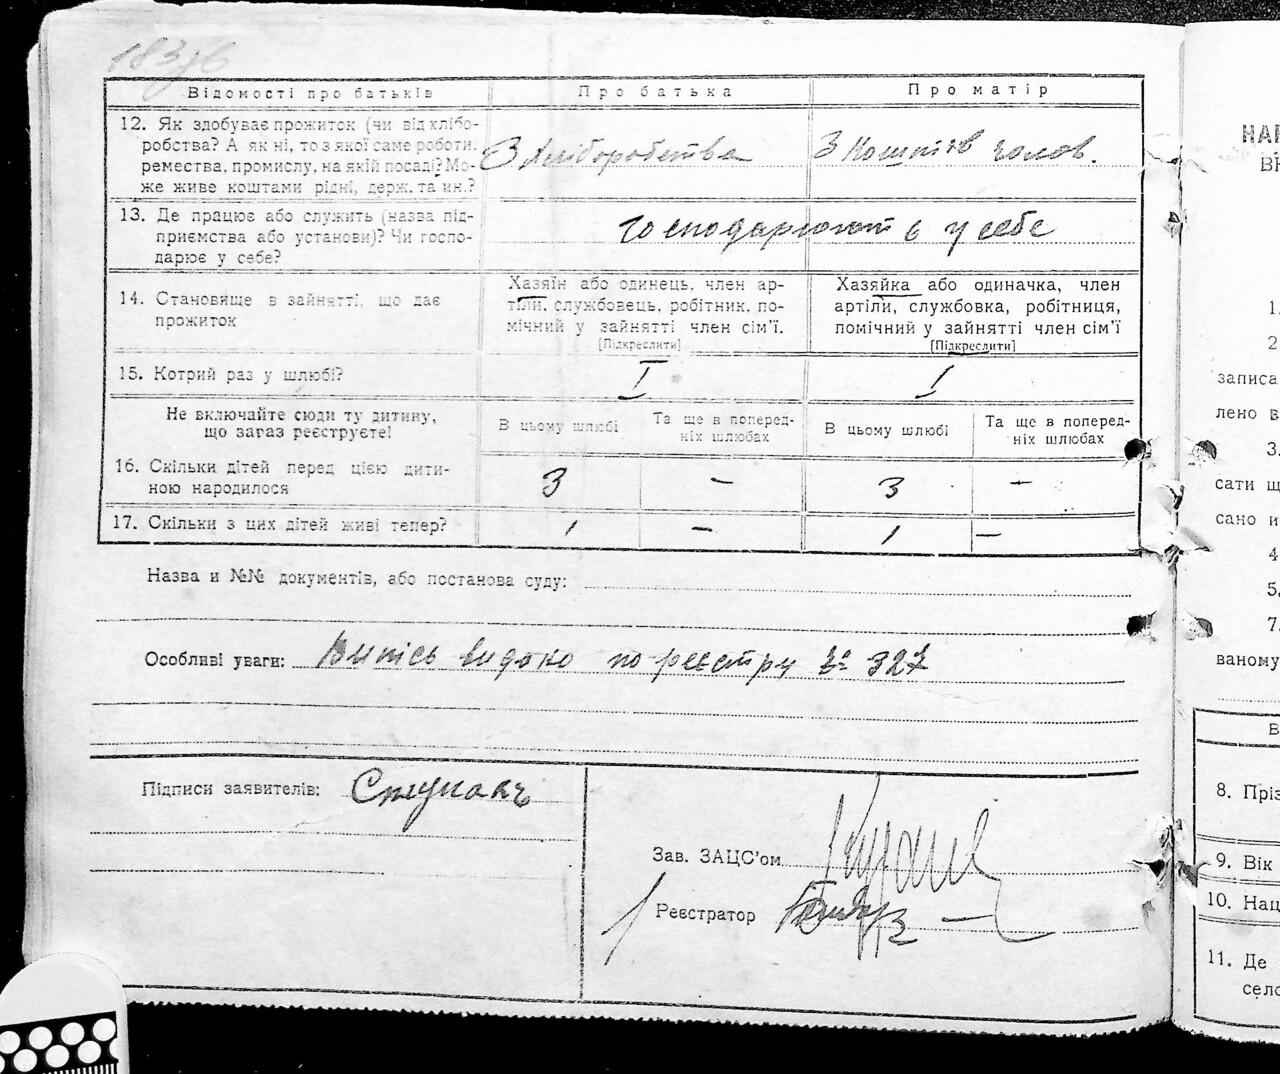 Відомості про батьків Про батька Про матір
12. Як здобуває прожиток (чи від хлібо-
робства? А як ні, то з якої саме роботи,
ремества, промислу, на якій посаді? Мо-
же живе коштами рідні, держ. та ин.?
З хліборобства З коштів голов.
13. Де працює або служить (назва під-
приємства або установи)? Чи госпо-
дарює у себе?
господарюють у себе
14. Становище в зайнятті, що дає
прожиток
Хазяїн або одинець, член ар-
тіли, службовець, робітник, по-
мічний у зайнятті член сім'ї.
[Підкреслити]
Хазяйка або одиначка, член
артіли, службовка, робітниця,
помічний у зайнятті член сім'ї
[Підкреслити]
15. Котрий раз у шлюбі? I I
Не включайте сюди ту дитину,
що зараз реєструєте!
В цьому шлюбі
Та ще в поперед-
ніх шлюбах
В цьому шлюбі
Та ще в поперед-
ніх шлюбах
16. Скільки дітей перед цією дити-
ною народилося
3 – 3 –
17. Скільки з цих дітей живі тепер? 1 – 1 –
Назва и №№ документів, або постанова суду:
Особливі уваги: Випісь видано по реєстру № 327
Підписи заявителів:
Зав. ЗАЦС'ом
Реєстратор
НАР
1.
2
записа
лено в
3.
сати щ
сано и
4
5.
7.
ваному
В
8. Пріз
9. Вік
10. Нац
11. Де
село